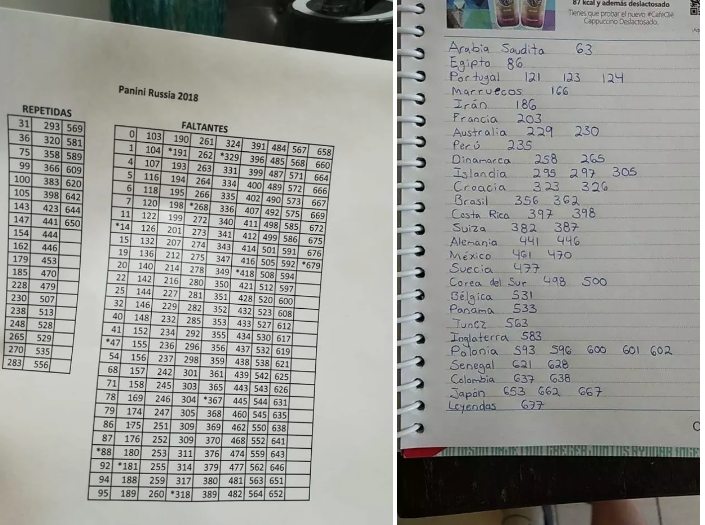 Panini Russia 2018
REPETIDAS
31 293 569
36 320 581
75 358 589
99 366 609
100 383 620
105 398 642
143 423 644
147 441 650
154 444
162 446
179 453
185 470
228 479
230 507
238 513
248 528
265 529
270 535
283 556
FALTANTES
0 103 190 261 324 391 484 567 658
1 104 *191 262 *329 396 485 568 660
4 107 193 263 331 399 487 571 664
5 116 194 264 334 400 489 572 666
6 118 195 266 335 402 490 573 667
7 120 198 *268 336 407 492 575 669
11 122 199 272 340 411 498 585 672
*14 126 201 273 341 412 499 586 675
15 132 207 274 343 414 501 591 676
19 136 212 275 347 416 505 592 *679
20 140 214 278 349 *418 508 594
22 142 216 280 350 421 512 597
25 144 227 281 351 428 520 600
32 146 229 282 352 432 523 608
40 148 232 285 353 433 527 612
41 152 234 292 355 434 530 617
*47 155 236 296 356 437 532 619
54 156 237 298 359 438 538 621
68 157 242 301 361 439 542 625
71 158 245 303 365 443 543 626
78 169 246 304 *367 445 544 631
79 174 247 305 368 460 545 635
86 175 251 309 369 462 550 638
87 176 252 309 370 468 552 641
*88 180 253 311 376 474 559 643
92 *181 255 314 379 477 562 646
94 188 259 317 380 481 563 651
95 189 260 *318 389 482 564 652
87 kcal y además deslactosado
Tienes que probar el nuevo #CaféOlé
Cappuccino Deslactosado.
Arabia Saudita 63
Egipto 86
Portugal 121 123 124
Marruecos 166
Irán 186
Francia 203
Australia 229 230
Perú 235
Dinamarca 258 265
Islandia 295 297 305
Croacia 323 326
Brasil 356 362
Costa Rica 397 398
Suiza 382 387
Alemania 441 446
México 461 470
Suecia 477
Corea del Sur 498 500
Bélgica 531
Panama 533
Tunez 563
Inglaterra 583
Polonia 593 596 600 601 602
Senegal 621 628
Colombia 637 638
Japón 653 662 667
Leyendas 677